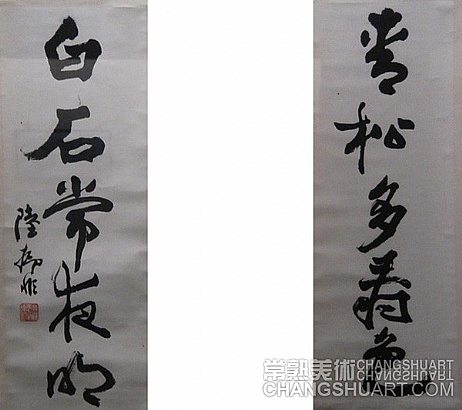 青松多壽色
白石常夜明
陸抑非
常熟美術 CHANGSHUART
CHANGSHUART.COM